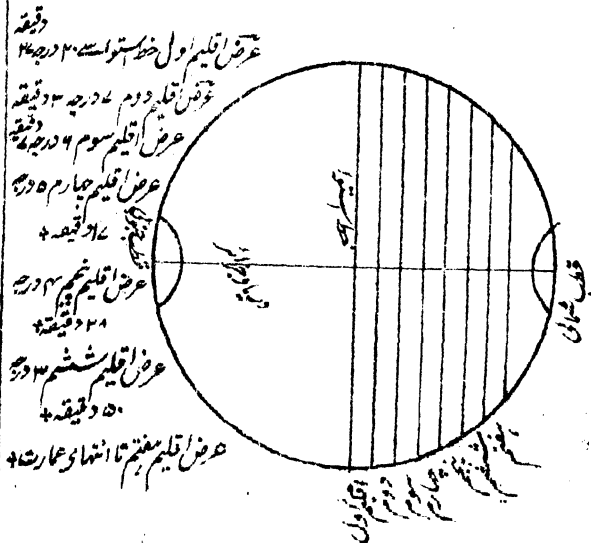 دقیقه
عرض اقلیم اول خط استوا سے ۲۰ درجہ ۲۷
عرض اقلیم دوم ۷ درجہ ۳ دقیقه
دقیقه
عرض اقلیم سوم ۶ درجہ ۷
عرض اقلیم چهارم ۵ درجہ
۱۷ دقیقه +
عرض اقلیم پنجم ۴ درجہ
۲۸ دقیقه +
عرض اقلیم ششم ۳ درجہ
۵۰ دقیقه +
عرض اقلیم هفتم تا انتهای عمارت +
قطب شمالی
اقلیم اول
دوم
سوم
چهارم
پنجم
ششم
هفتم